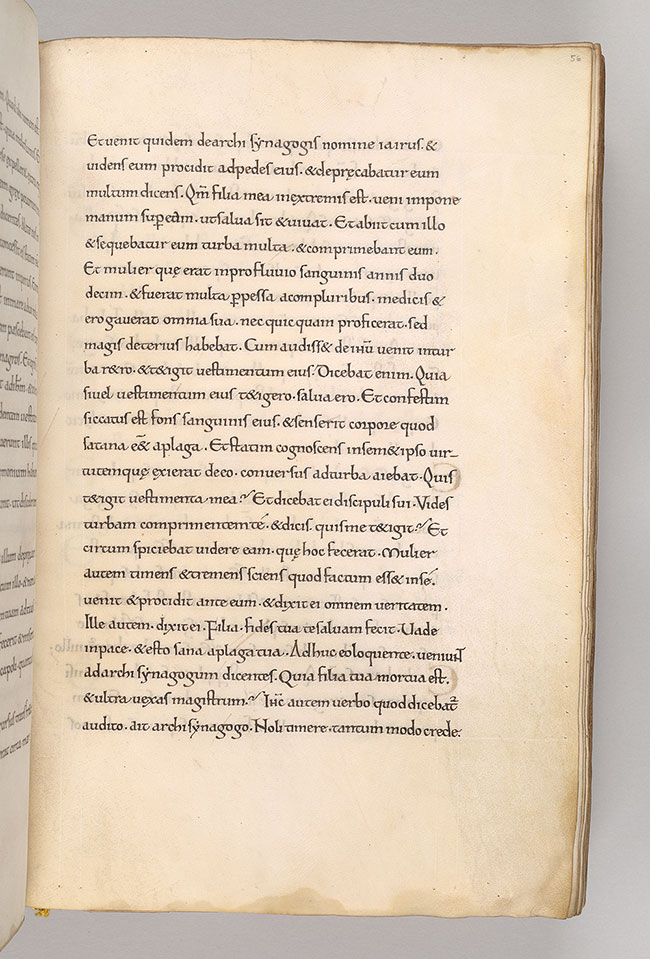 56
Et uenit quidem dearchi synagogis nomine iairus. &
uidens eum procidit adpedes eius. & depręcabatur eum
multum dicens. Qm̄ filia mea inextremis est. ueni impone
manum sup eam. utsalua sit & uiuat. Et abiit cum illo
& sequebatur eum turba multa. & comprimebant eum.
Et mulier quę erat inprofluuio sanguinis annis duo
decim. & fuerat multa ꝑpessa acompluribus. medicis &
erogauerat omnia sua. nec quicquam proficerat. sed
magis deterius habebat. Cum audiss& de ihū uenit intur
ba retro. & t&igit uestimentum eius. Dicebat enim. Quia
siuel uestimentum eius t&igero. salua ero. Et confestim
siccatus est fons sanguinis eius. & senserit corpore quod
satana eēt aplaga. Et statim cognoscens insem&ipso uir-
tutemquę exierat deeo. conuersus adturba aiebat. Quis
t&igit uestimenta mea? Et dicebat ei discipuli sui. Vides
turbam comprimentem té. & dicis. quis me t&igit? Et
circum spiciebat uidere eam. quę hoc fecerat. Mulier
autem timens & tremens sciens quod factum ess& insé.
uenit & procidit ante eum. & dixit ei omnem ueritatem.
Ille autem. dixit ei. Filia. fides tua te saluam fecit. Uade
inpace. & esto sana aplaga tua. Adhuc eo loquente. ueniunt
adarchi synagogum dicentes. Quia filia tua mortua est.
& ultra uexas magistrum? Ihc̄ autem uerbo quod dicebat̄
audito. ait archi synagogo. Noli timere. tantum modo crede.